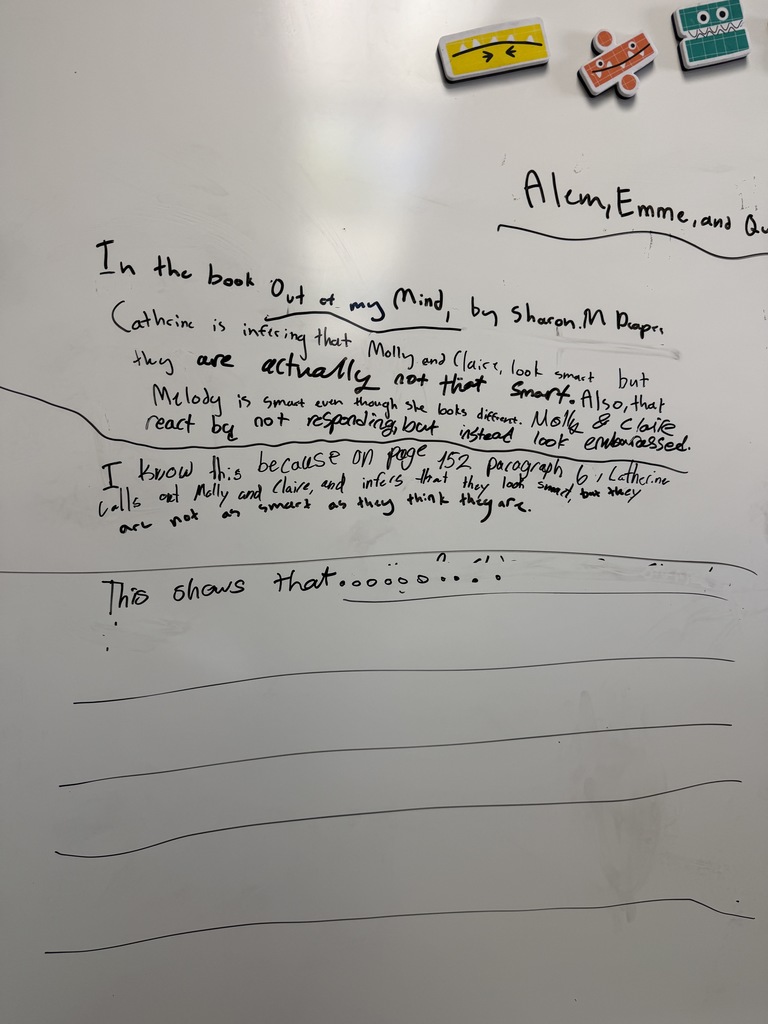 Alem, Emme, and Qu
In the book Out of my Mind, by Sharon.M Draper,
Catherine is infering that Molly and Claire, look smart but
they are actually not that smart. Also, that
Melody is smart even though she looks different. Molly & Claire
react by not responding, but instead look embarassed.
I know this because on page 152 paragraph 6, Catherine
calls out Molly and Claire, and infers that they look smart, but they
are not as smart as they think they are.
This shows that..........